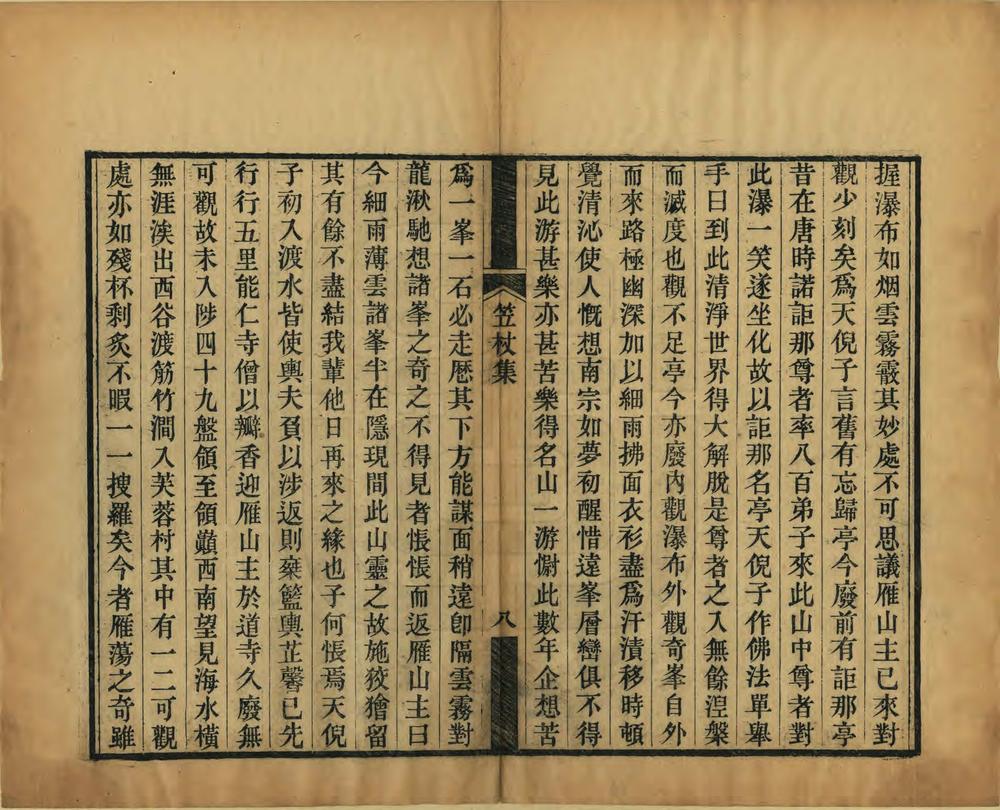 握瀑布如烟雲霧霰其妙處不可思議雁山主已來對
觀少刻矣爲天倪子言舊有忘歸亭今廢前有詎那亭
昔在唐時諾詎那尊者率八百弟子來此山中尊者對
此瀑一笑遂坐化故以詎那名亭天倪子作佛法單舉
手曰到此清淨世界得大解脫是尊者之入無餘湼槃
而滅度也觀不足亭今亦廢內觀瀑布外觀奇峯自外
而來路極幽深加以細雨拂面衣衫盡爲汗漬移時頓
覺清沁使人慨想南宗如夢初醒惜遠峯層巒俱不得
見此游甚樂亦甚苦樂得名山一游慰此數年企想苦
笠杖集
八
爲一峯一石必走厯其下方能謀面稍遠卽隔雲霧對
龍湫馳想諸峯之奇之不得見者悵悵而返雁山主曰
今細雨薄雲諸峯半在隱現間此山靈之故施狡獪留
其有餘不盡結我輩他日再來之緣也予何悵焉天倪
子初入渡水皆使輿夫負以涉返則棄籃輿芷馨已先
行行五里能仁寺僧以瓣香迎雁山主於道寺久廢無
可觀故未入陟四十九盤領至領巔西南望見海水橫
無涯涘出西谷渡筋竹澗入芙蓉村其中有一二可觀
處亦如殘杯剩炙不暇一一搜羅矣今者雁蕩之奇雖